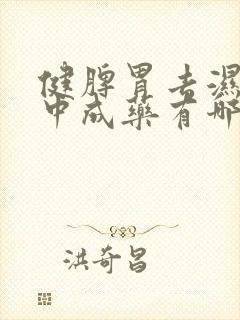 健脾胃去濕
中成藥有哪
洪奇昌